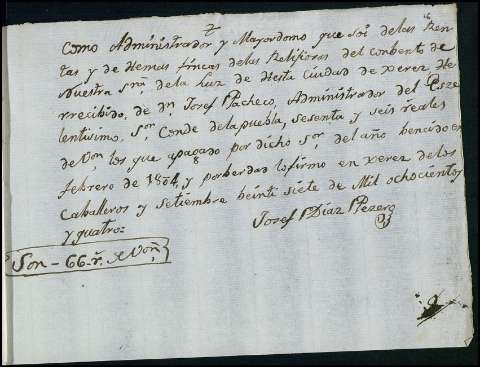 Como Administrador y Mayordomo que soi delas Ren-
tas y de hemas fincas delas Relijiosas del conbento de
Nuestra Srª. dela Luz de hesta Ciudad de Xerez he
rrecibido, de dn. Josef Pacheco, Administrador del Esze
lentisimo. Sor. Conde delapuebla, sesenta y seis reales
de Von. los que apagado por dicho Sor. del año bencido en
febrero de 1804, y porberdad lofirmo en xerez delos
Caballeros y setiembre beinti siete de Mil ochocientos
y quatro=
Josef Diaz Pezero
Son - 66 r. de Von.